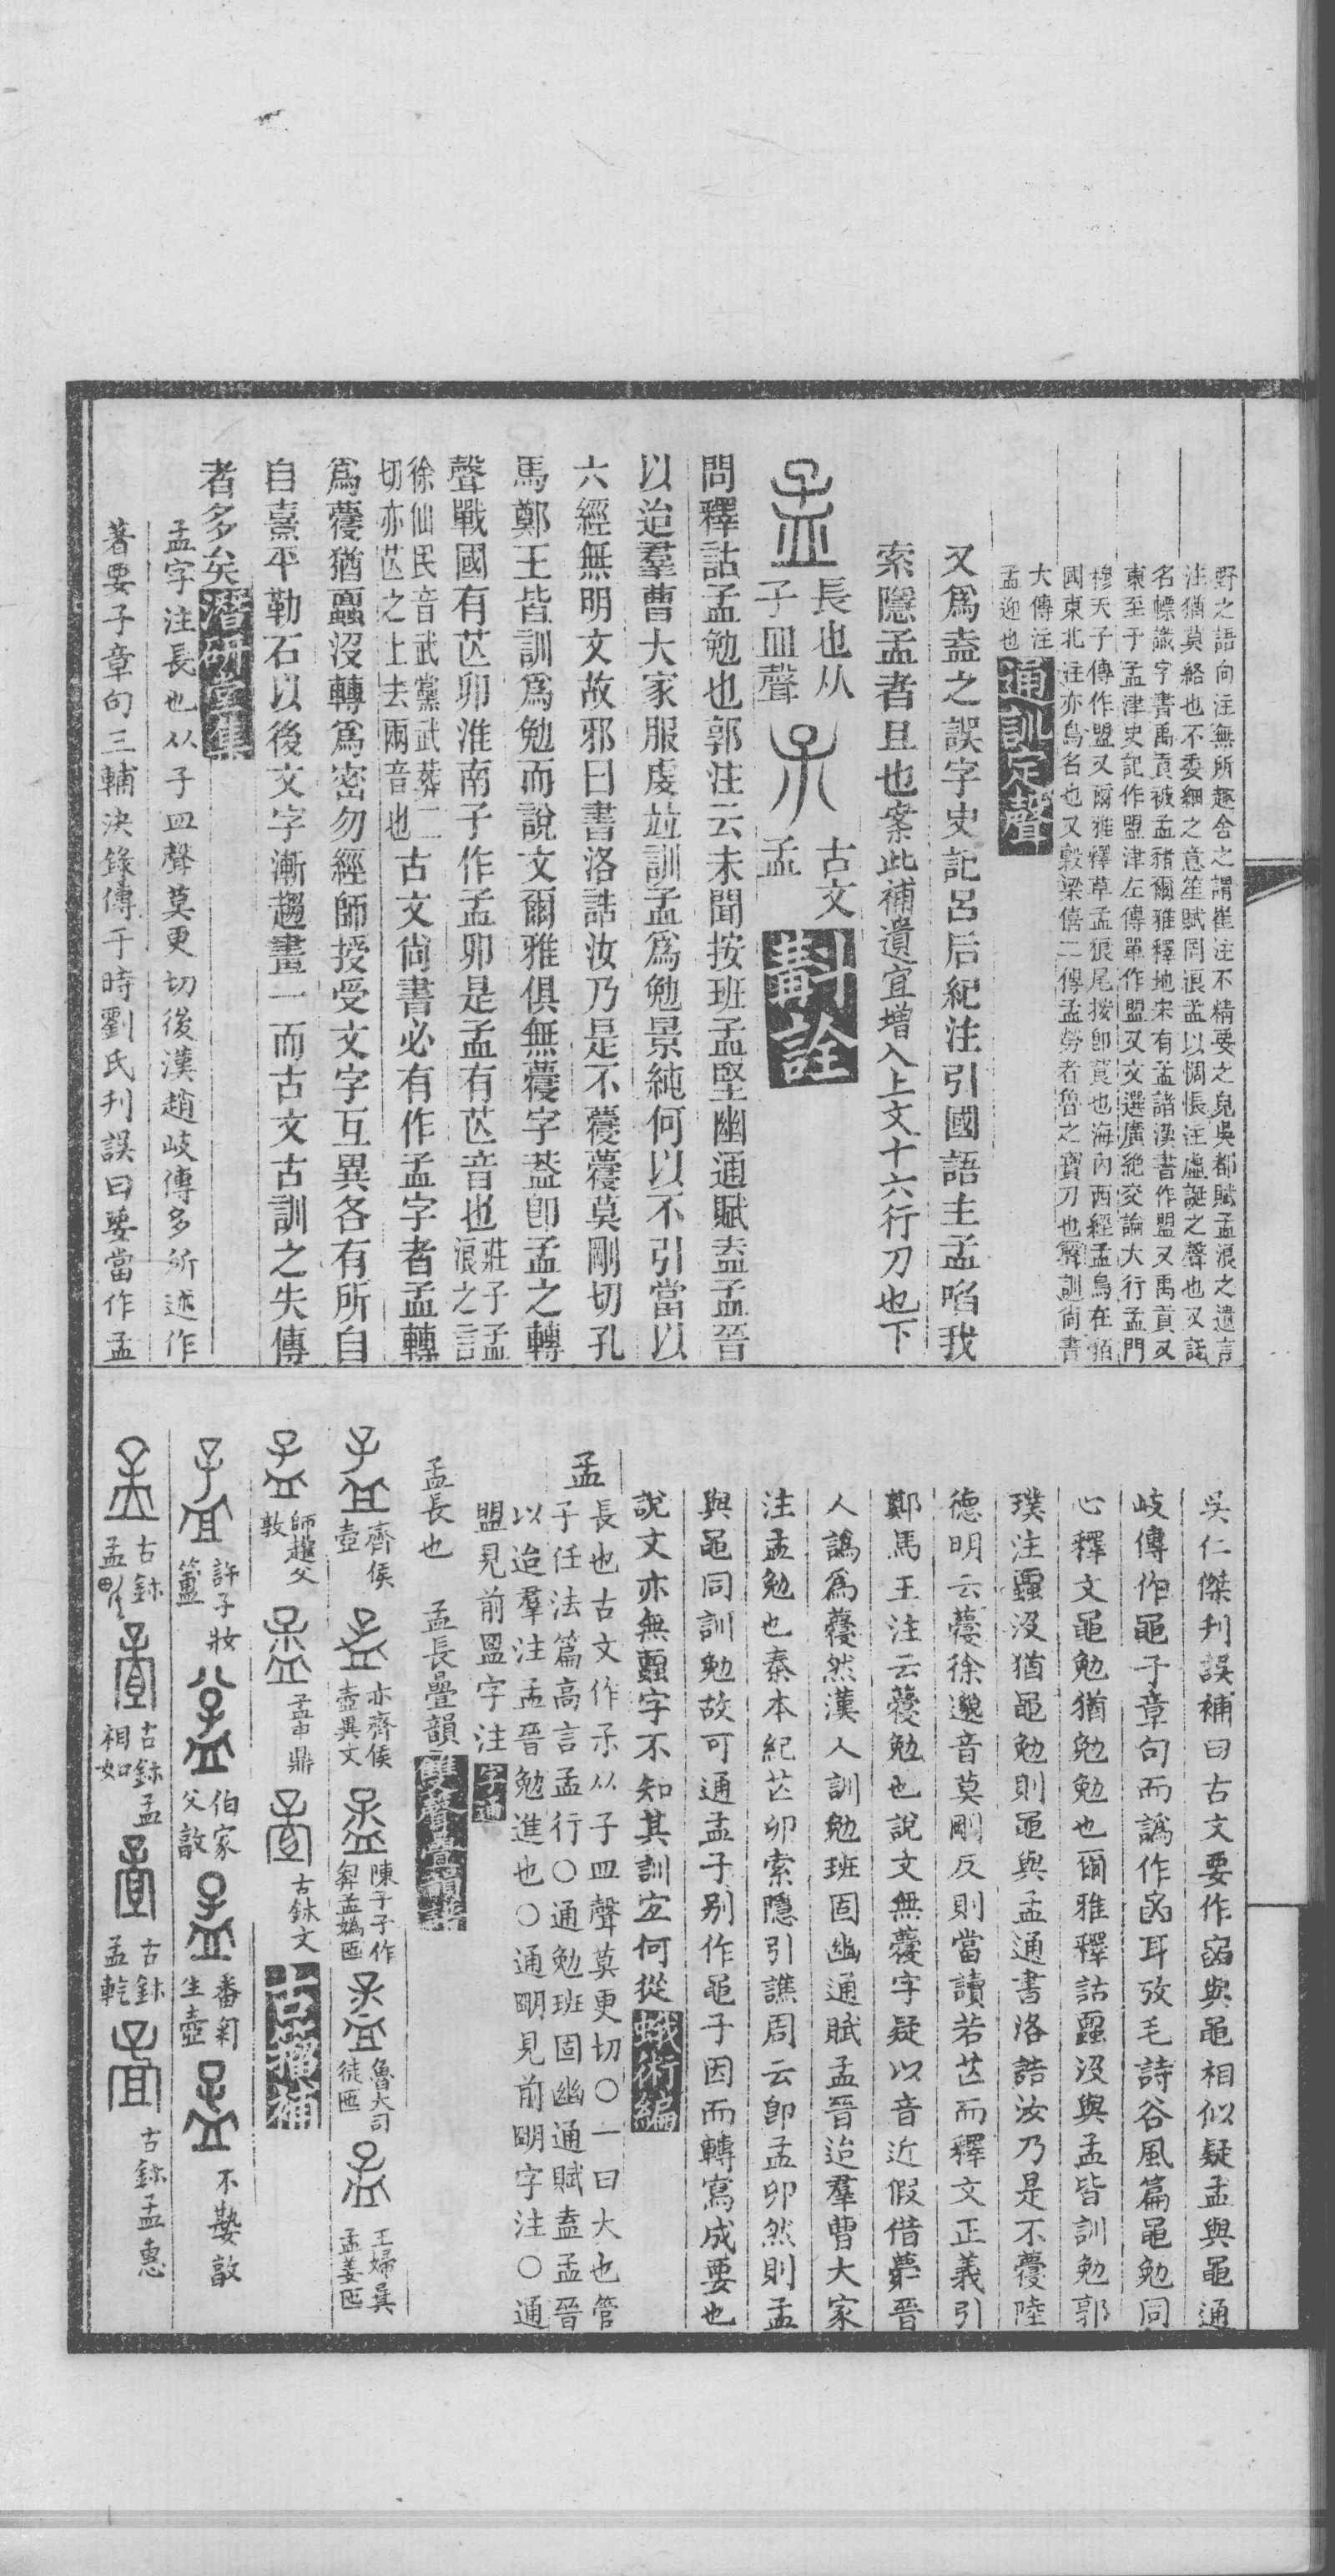 野之語向注無所趣舍之謂崔注不精要之皃吳都賦孟浪之遺言
注猶莫絡也不委細之意笙賦罔浪孟以惆悵注虛誕之聲也又託
名幖識字書禹貢被孟豬爾雅釋地宋有孟諸漢書作盟又禹貢又
東至于孟津史記作盟津左傳單作盟又文選廣絶交論大行孟門
穆天子傳作盟又爾雅釋草孟狼尾按卽莨也海內西經孟鳥在貊
國東北注亦鳥名也又穀梁僖二傳孟勞者魯之寶刀也聲訓尙書
大傳注
孟迎也通訓定聲
又爲盍之誤字史記呂后紀注引國語主孟啗我
索隱孟者且也案此補遺宜增入上文十六行刀也下
長也从
子皿聲
古文
孟
斠詮
問釋詁孟勉也郭注云未聞按班孟堅幽通賦盍孟晉
以迨羣曹大家服虔竝訓孟爲勉景純何以不引當以
六經無明文故邪曰書洛誥汝乃是不蘉蘉莫剛切孔
馬鄭王皆訓爲勉而說文爾雅俱無蘉字葢卽孟之轉
聲戰國有芒卯淮南子作孟卯是孟有芒音也莊子孟
浪之言
徐仙民音武黨武葬二
切亦芒之上去兩音也古文尙書必有作孟字者孟轉
爲蘉猶蠠沒轉爲密勿經師授受文字互異各有所自
自熹平勒石以後文字漸趨畫一而古文古訓之失傳
者多矣潛硏堂集
孟字注長也从子皿聲莫更切後漢趙岐傳多所述作
著要子章句三輔決錄傳于時劉氏刊誤曰要當作孟
吳仁傑刊誤補曰古文要作𡇢與黽相似疑孟與黽通
岐傳作黽子章句而譌作𡇢耳攷毛詩谷風篇黽勉同
心釋文黽勉猶勉勉也爾雅釋詁蠠沒與孟皆訓勉郭
璞注蠠沒猶黽勉則黽與孟通書洛誥汝乃是不蘉陸
德明云蘉徐邈音莫剛反則當讀若芒而釋文正義引
鄭馬王注云蘉勉也說文無蘉字疑以音近假借夢晉
人譌爲蘉然漢人訓勉班固幽通賦孟晉迨羣曹大家
注孟勉也秦本紀芒卯索隱引譙周云卽孟卯然則孟
與黽同訓勉故可通孟子別作黽子因而轉寫成要也
說文亦無蠠字不知其訓定何從蛾術編
孟長也古文作𣎼从子皿聲莫更切○一曰大也管
子任法篇高言孟行○通勉班固幽通賦盍孟晉
以迨羣注孟晉勉進也○通明見前明字注○通
盟見前盟字注字通
孟長也　孟長疊韻雙聲疊韻譜
齊侯
壺
亦齊侯
壺異文
陳子子作
㝃孟嬀匜
魯大司
徒匜
王婦㠱
孟姜匜
師趛父
敦
孟申鼎
古鉢文
古籀補
許子妝
簠
伯家
父敦
番匊
生壺
不㛗敦
古鉢
孟
古鉢孟
相如
古鉢
孟乾
古鉢孟惠